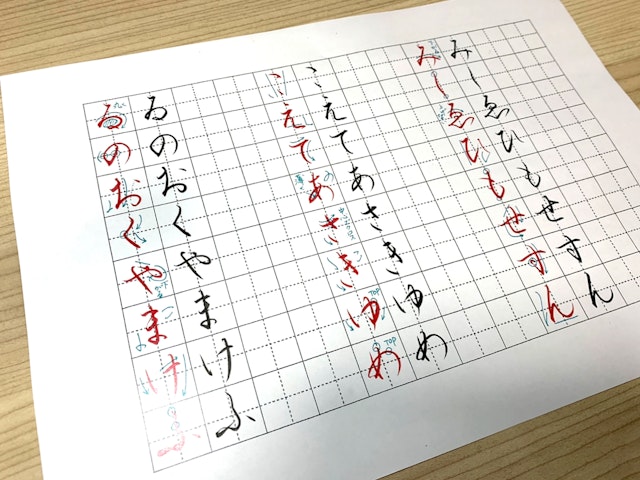 ゐのおくやまけふ
ゐのおくやまけふ
こえてあさきゆめ
こえてあさきゆめ
みしゑひもせすん
みしゑひもせすん
TOP
TOP